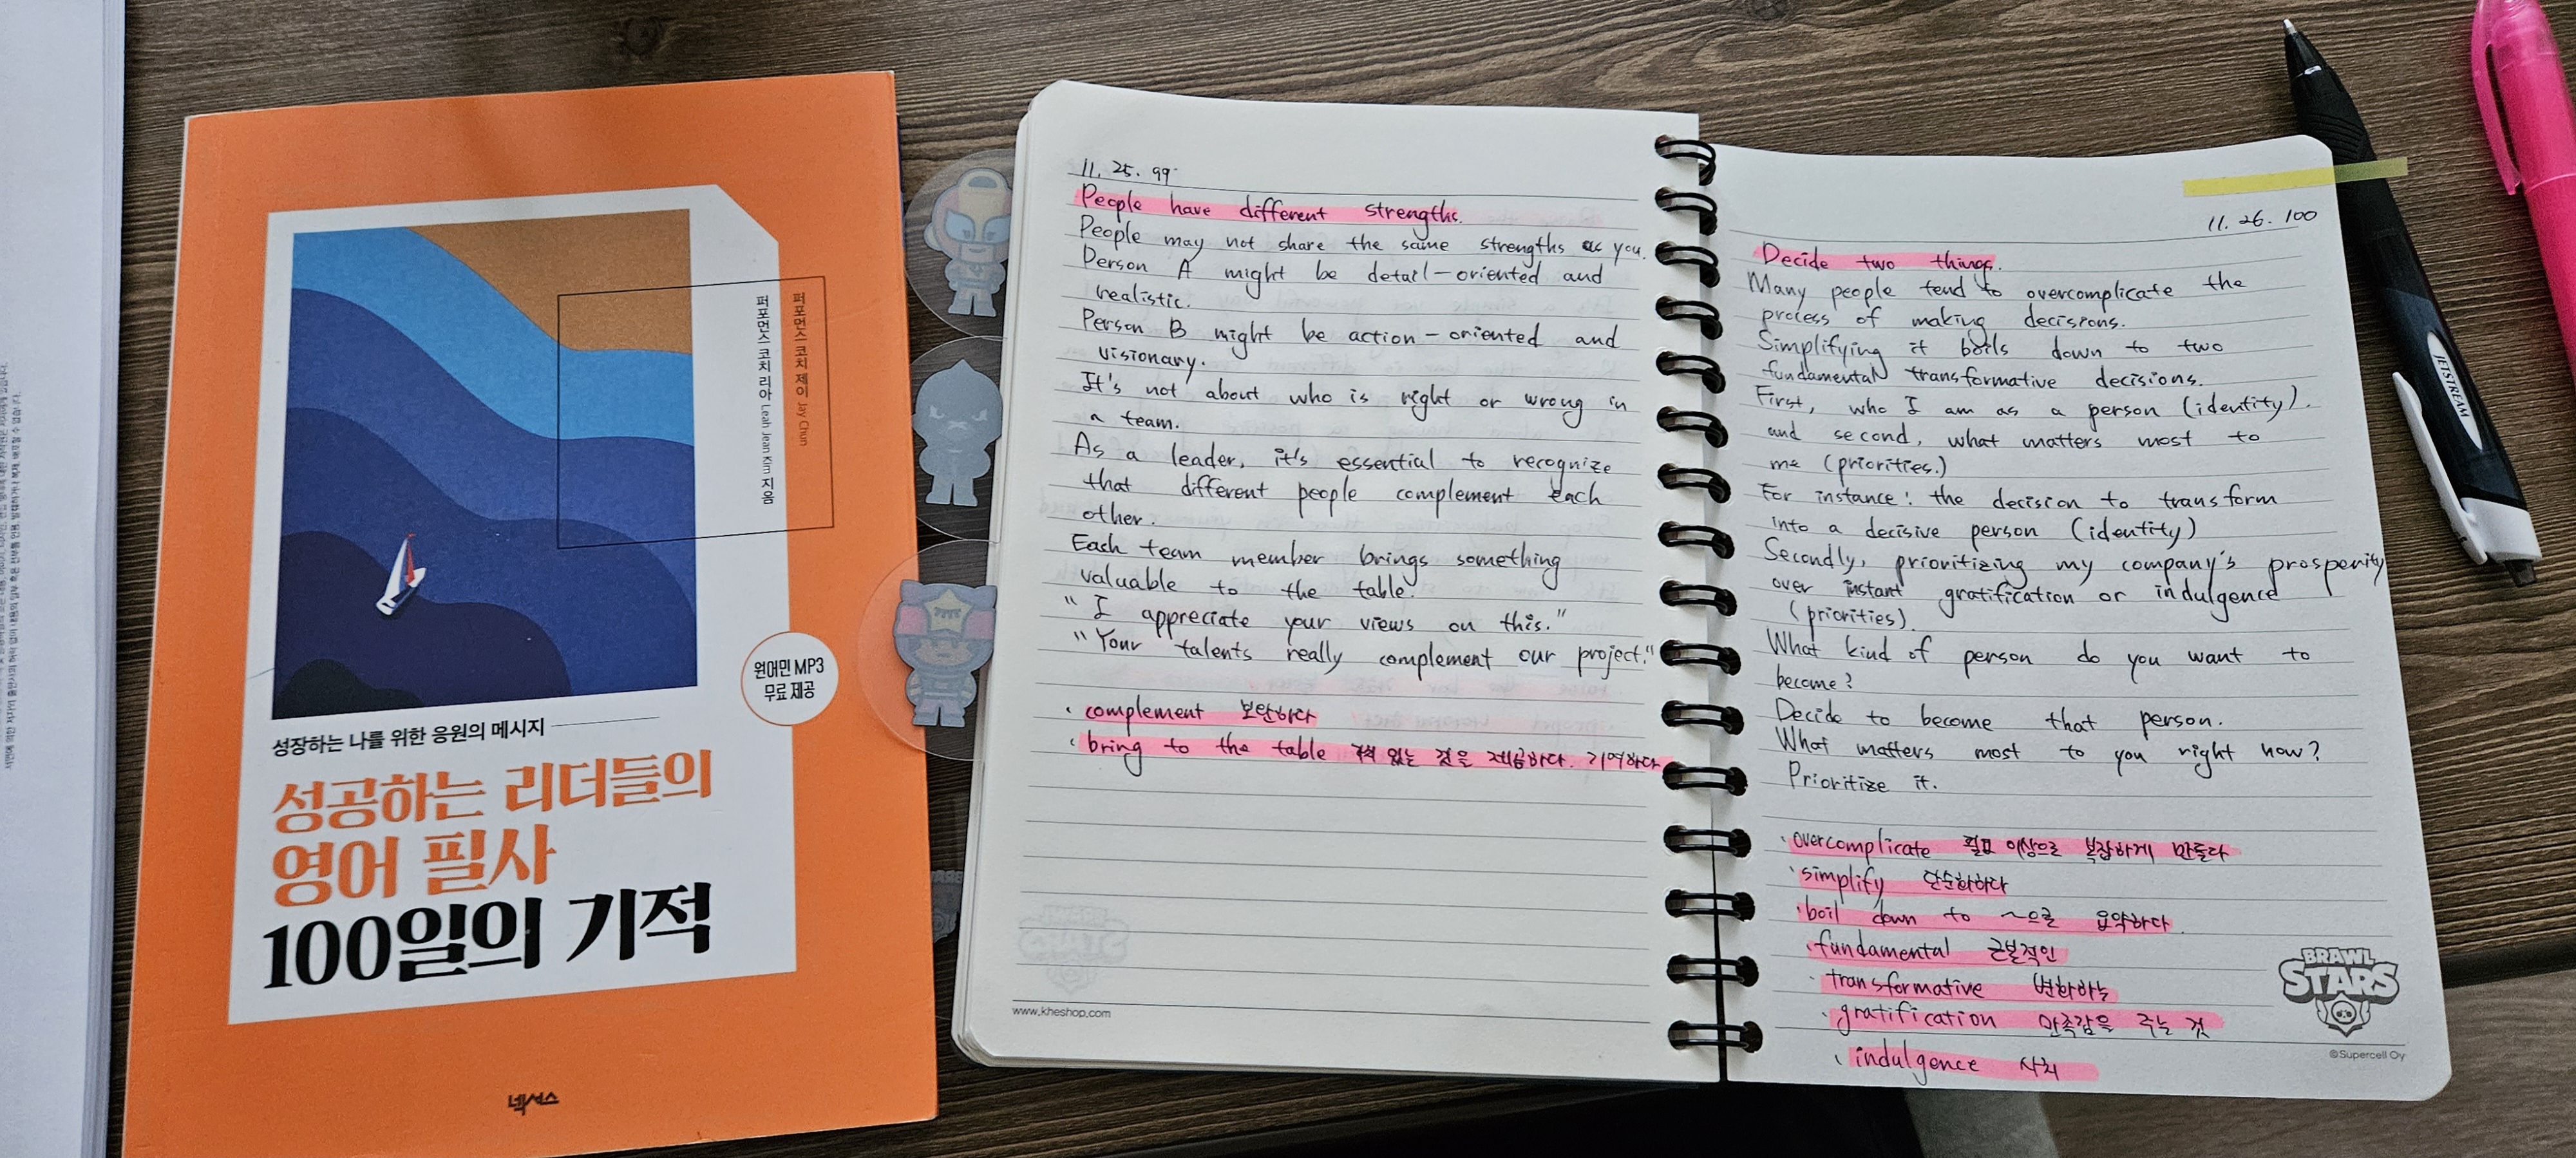 퍼포먼스 코치 제이 Jay Chun
퍼포먼스 코치 리아 Leah Jean Kim 지음
원어민 MP3
무료 제공
성장하는 나를 위한 응원의 메시지
성공하는 리더들의
영어 필사
100일의 기적
넥서스
11. 25. 99
People have different strengths.
People may not share the same strengths as you.
Person A might be detail-oriented and
realistic.
Person B might be action-oriented and
visionary.
It's not about who is right or wrong in
a team.
As a leader, it's essential to recognize
that different people complement each
other.
Each team member brings something
valuable to the table.
"I appreciate your views on this."
"Your talents really complement our project."
· complement 보완하다
· bring to the table 가치 있는 것을 제공하다. 기여하다
www.kheshop.com
11. 26. 100
Decide two things.
Many people tend to overcomplicate the
process of making decisions.
Simplifying it boils down to two
fundamental transformative decisions.
First, who I am as a person (identity).
and second, what matters most to
me (priorities.)
For instance: the decision to transform
into a decisive person (identity)
Secondly, prioritizing my company's prosperity
over instant gratification or indulgence
(priorities).
What kind of person do you want to
become?
Decide to become that person.
What matters most to you right now?
Prioritize it.
· overcomplicate 필요 이상으로 복잡하게 만들다
· simplify 단순화하다
· boil down to ~으로 요약하다
· fundamental 근본적인
· transformative 변화하는
· gratification 만족감을 주는 것
· indulgence 사치
BRAWL
STARS
©Supercell Oy
JETSTREAM